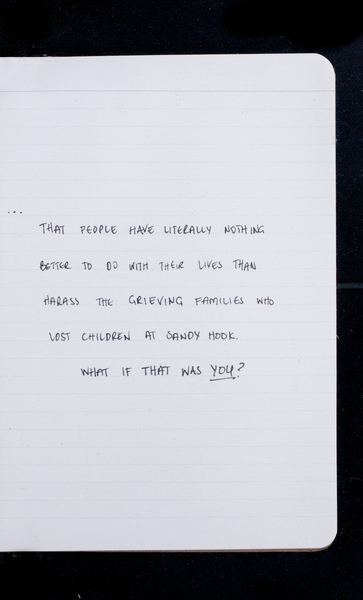 ...
THAT PEOPLE HAVE LITERALLY NOTHING
BETTER TO DO WITH THEIR LIVES THAN
HARASS THE GRIEVING FAMILIES WHO
LOST CHILDREN AT SANDY HOOK.
WHAT IF THAT WAS YOU?